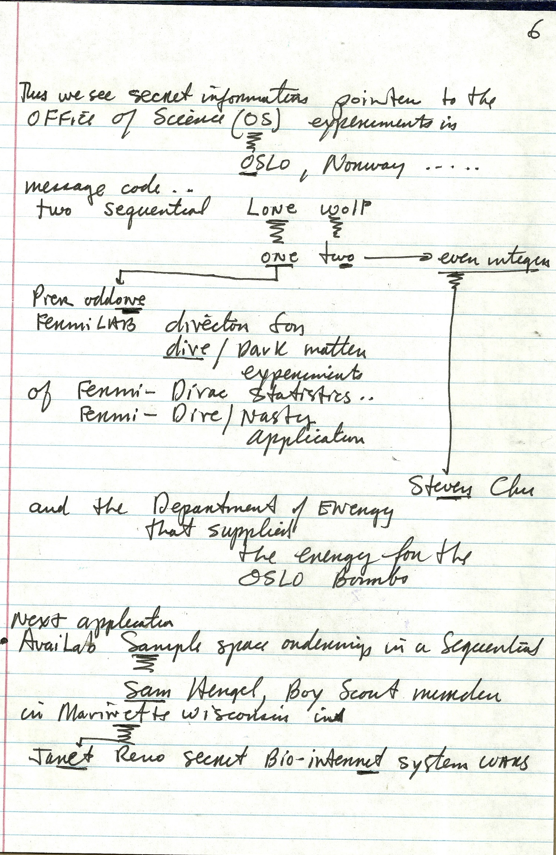 6
Thus we see secret information pointer to the
OFFice of Science (OS) experiments in
OSLO, Norway .....
message code ..
two sequential Lone wolf
one two → even integer
Pier oddone
FermiLAB director for
dive / Dark matter
experiments
of Fermi - Dirac Statistics ..
Fermi - Dive / Nasty
application
Steven Chu
and the Department of Energy
that supplied
the energy for the
OSLO Bombs
Next application
AvaiLab Sample space ordering in a Sequential
Sam Hengel, Boy Scout murder
in Marinette Wisconsin in
Janet Reno secret Bio-internet system wars